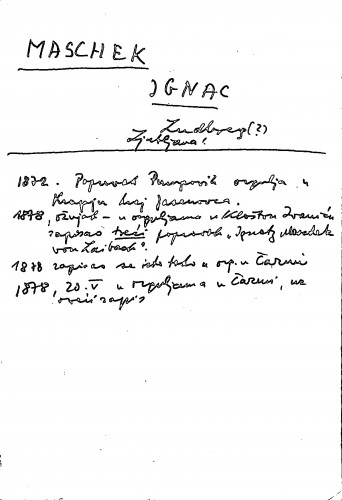 MASCHEK
IGNAC
Ludbreg (?)
Ljubljana!
1872. Popravak Pumpovih orgulja u
Krapju kraj Jasenovca.
1878, ožujak – u orguljama u Kloštru Ivaniću
zapisao treći popravak „Ignatz Maschek
von Laibach".
1878 zapisao se isto tako u org. u Čazmi
1878, 20. V u orguljama u Čazmi,
zapis